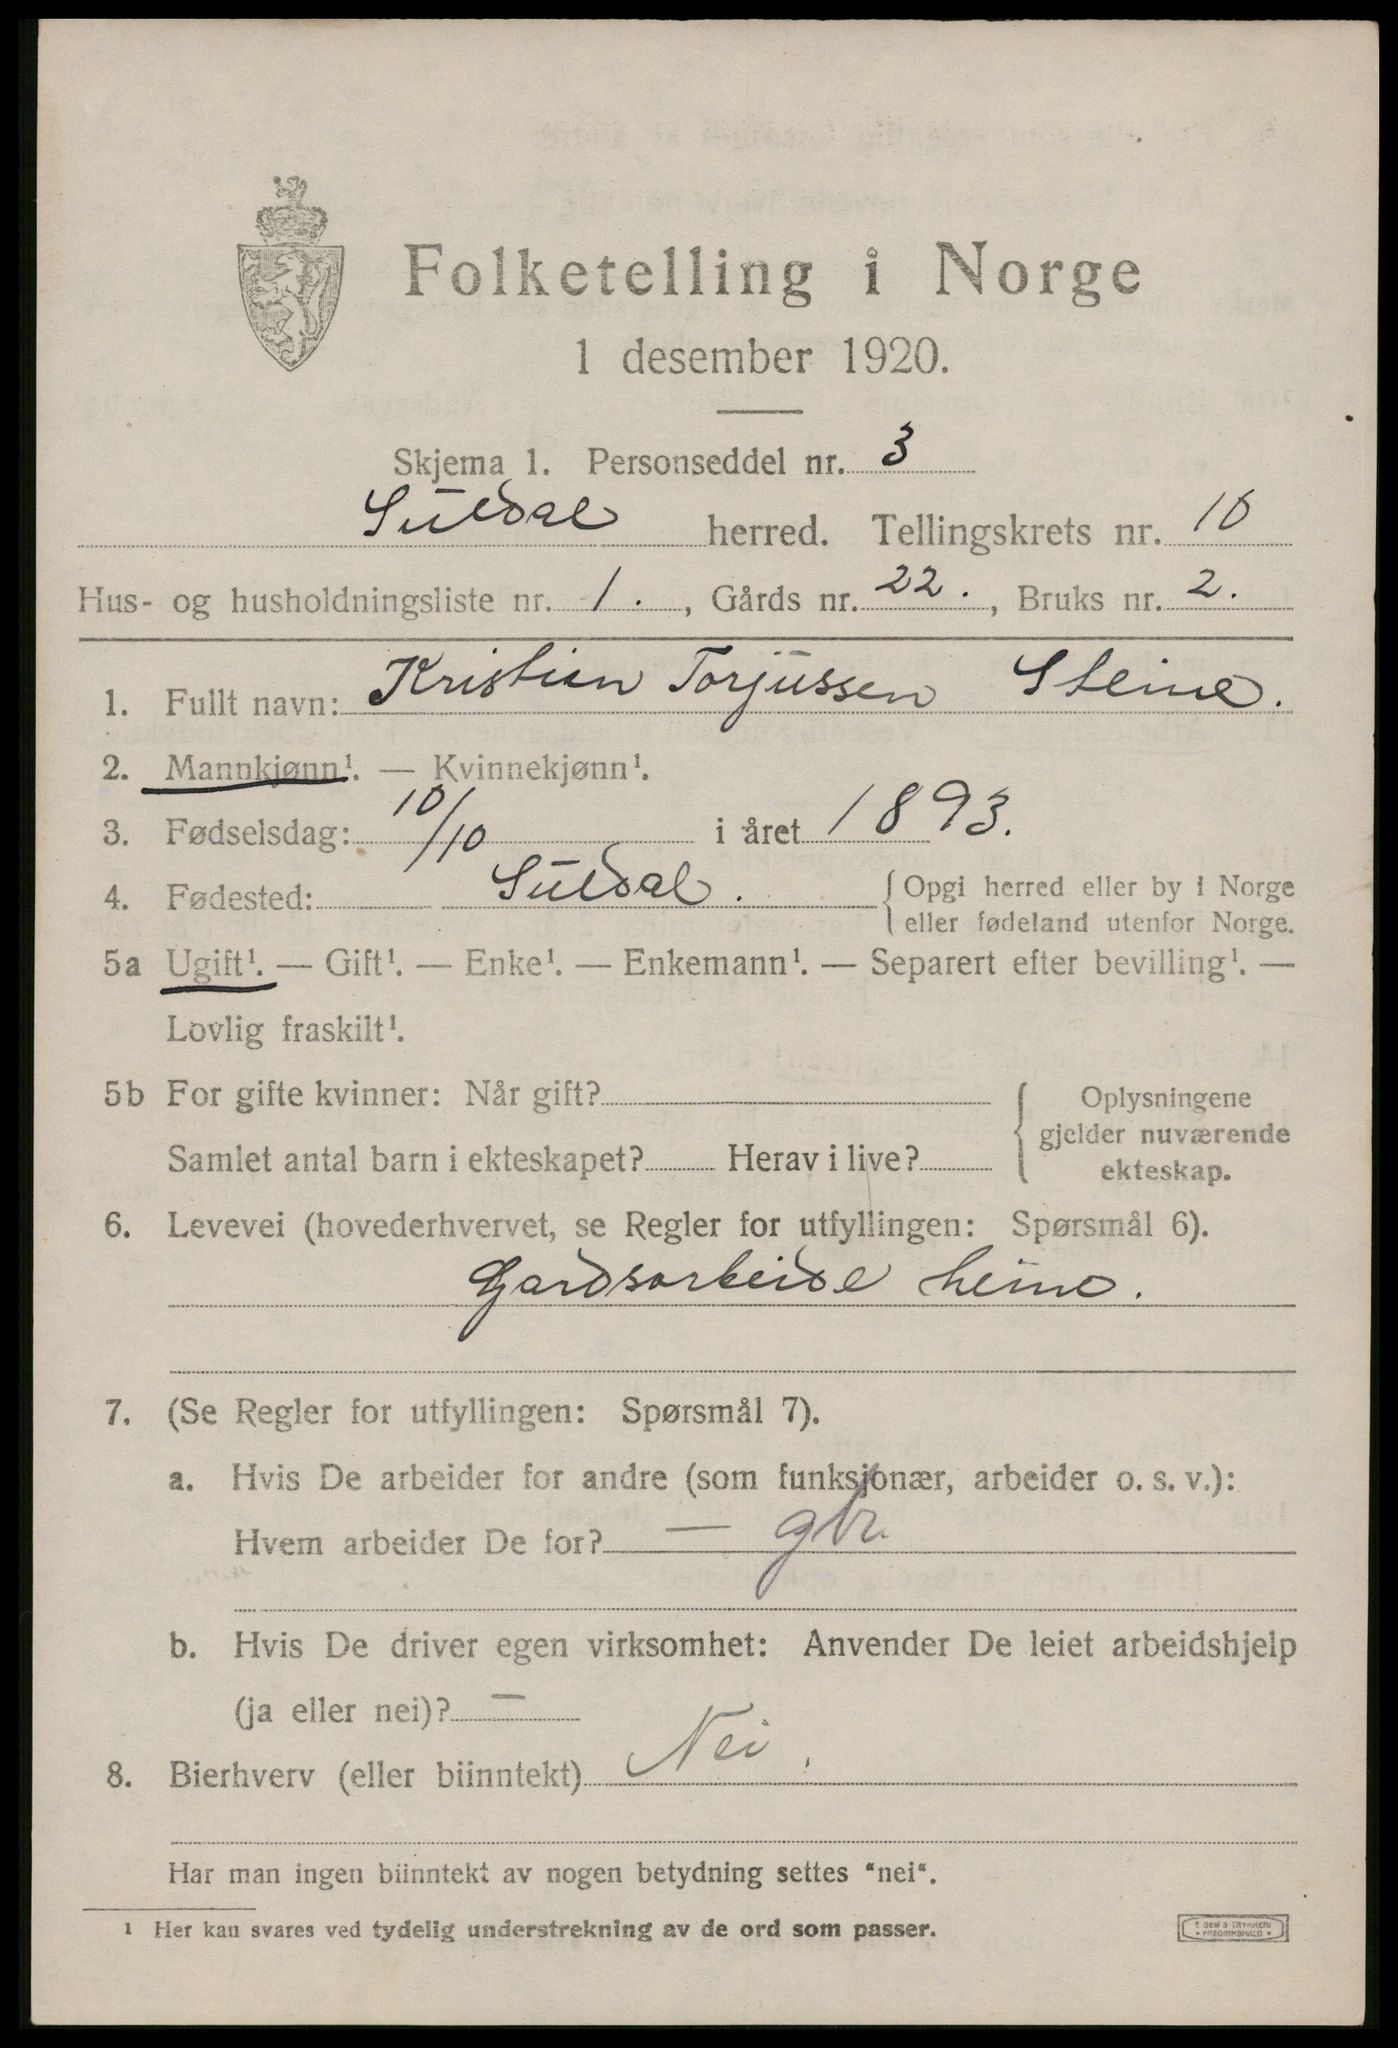 Folketelling i Norge
1 desember 1920.
Skjema 1. Personseddel nr. 3
Suldal herred. Tellingskrets nr. 10
Hus- og husholdningsliste nr. 1., Gårds nr. 22., Bruks nr. 2.
1. Fullt navn: Kristian Torjussen Steine.
2. Mannkjønn¹. — Kvinnekjønn¹.
3. Fødselsdag: 10/10 i året 1893.
4. Fødested: Suldal. { Opgi herred eller by i Norge
eller fødeland utenfor Norge.
5a Ugift¹. — Gift¹. — Enke¹. — Enkemann¹. — Separert efter bevilling¹. —
Lovlig fraskilt¹.
5b For gifte kvinner: Når gift? { Oplysningene
gjelder nuværende
Samlet antal barn i ekteskapet? Herav i live? ekteskap.
6. Levevei (hovederhvervet, se Regler for utfyllingen: Spørsmål 6).
Gardsarbeide heime.
7. (Se Regler for utfyllingen: Spørsmål 7).
a. Hvis De arbeider for andre (som funksjonær, arbeider o. s. v.):
Hvem arbeider De for? — gbr.
b. Hvis De driver egen virksomhet: Anvender De leiet arbeidshjelp
(ja eller nei)? —
8. Bierhverv (eller biinntekt) Nei.
Har man ingen biinntekt av nogen betydning settes “nei“.
¹ Her kan svares ved tydelig understrekning av de ord som passer.